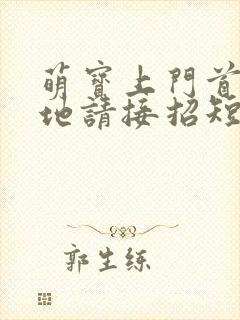 萌寶上門首
地請接招短
郭生練